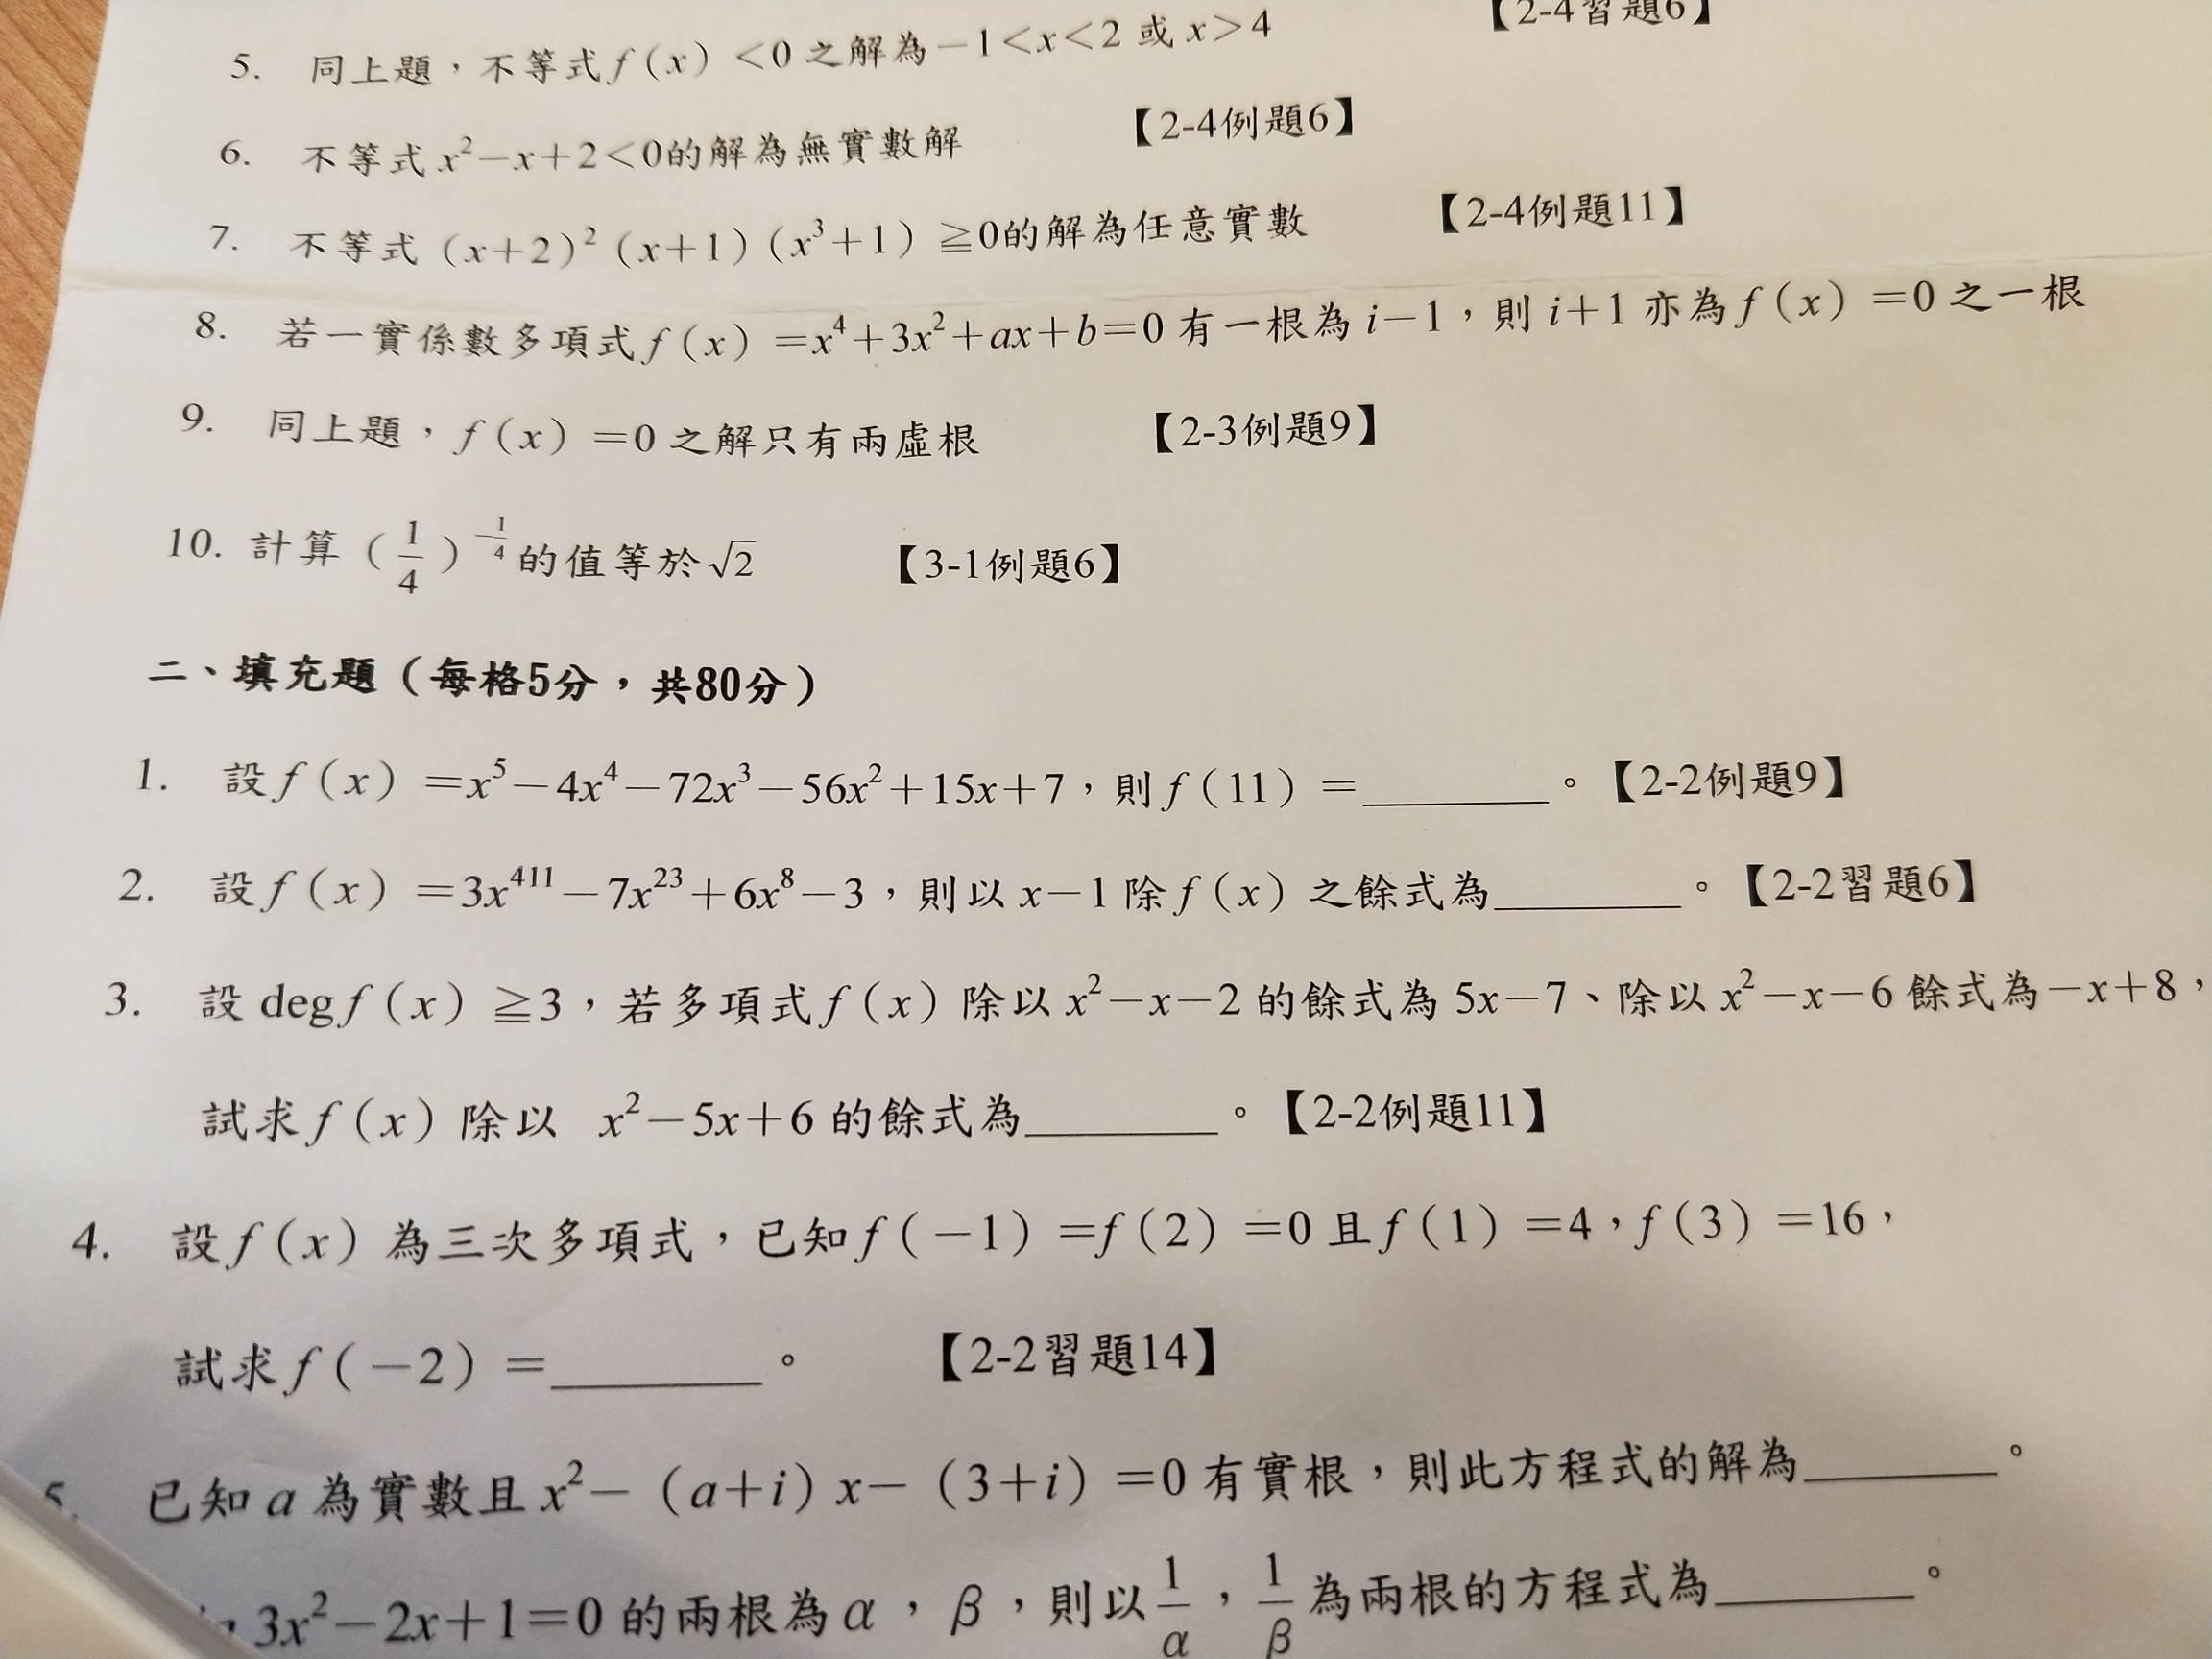 【2-4習題6】
5. 同上題，不等式f(x)<0之解為-1<x<2 或 x>4
6. 不等式x²-x+2<0的解為無實數解 【2-4例題6】
7. 不等式 (x+2)² (x+1) (x³+1) ≧0的解為任意實數 【2-4例題11】
8. 若一實係數多項式f(x) =x⁴+3x²+ax+b=0 有一根為 i-1，則 i+1 亦為f(x) =0 之一根
9. 同上題，f(x) =0 之解只有兩虛根 【2-3例題9】
10. 計算 (1/4)^(-1/4) 的值等於√2 【3-1例題6】
二、填充題（每格5分，共80分）
1. 設f(x) =x⁵-4x⁴-72x³-56x²+15x+7，則f(11) =________。【2-2例題9】
2. 設f(x) =3x⁴¹¹-7x²³+6x⁸-3，則以 x-1 除f(x) 之餘式為________。【2-2習題6】
3. 設 degf(x) ≧3，若多項式f(x) 除以 x²-x-2 的餘式為 5x-7、除以 x²-x-6 餘式為-x+8，
試求f(x) 除以 x²-5x+6 的餘式為________。【2-2例題11】
4. 設f(x) 為三次多項式，已知f(-1) =f(2) =0 且f(1) =4，f(3) =16，
試求f(-2) =________。 【2-2習題14】
5. 已知 a 為實數且 x²-(a+i) x-(3+i) =0 有實根，則此方程式的解為________。
3x²-2x+1=0 的兩根為α，β，則以 1/α，1/β 為兩根的方程式為________。